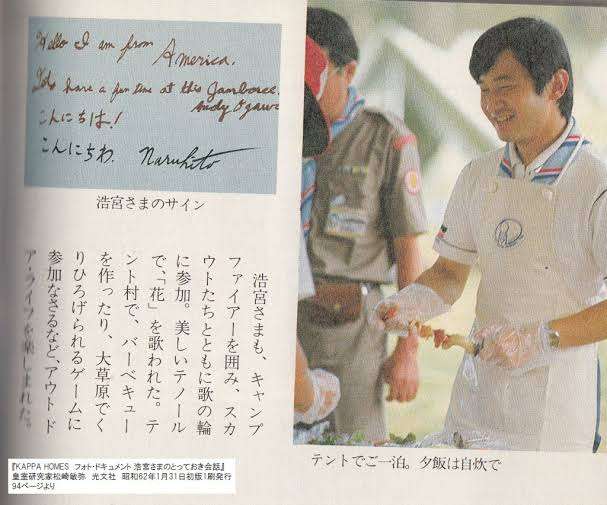 Hello I am from America.
have a fun time at this Jamboree.
Andy Ogawa
こんにちは!
こんにちわ. Naruhito
浩宮さまのサイン
浩宮さまも、キャンプ
ファイアーを囲み、スカ
ウトたちとともに歌の輪
に参加。美しいテノール
で、「花」を歌われた。テ
ント村で、バーベキュー
を作ったり、大草原でく
りひろげられるゲームに
参加なさるなど、アウトド
ア・ライフを楽しまれた。
テントでご一泊。夕飯は自炊で
『KAPPA HOMES フォト・ドキュメント 浩宮さまのとっておき会話』
皇室研究家松崎敏弥 光文社 昭和62年1月31日初版1刷発行
94ページより